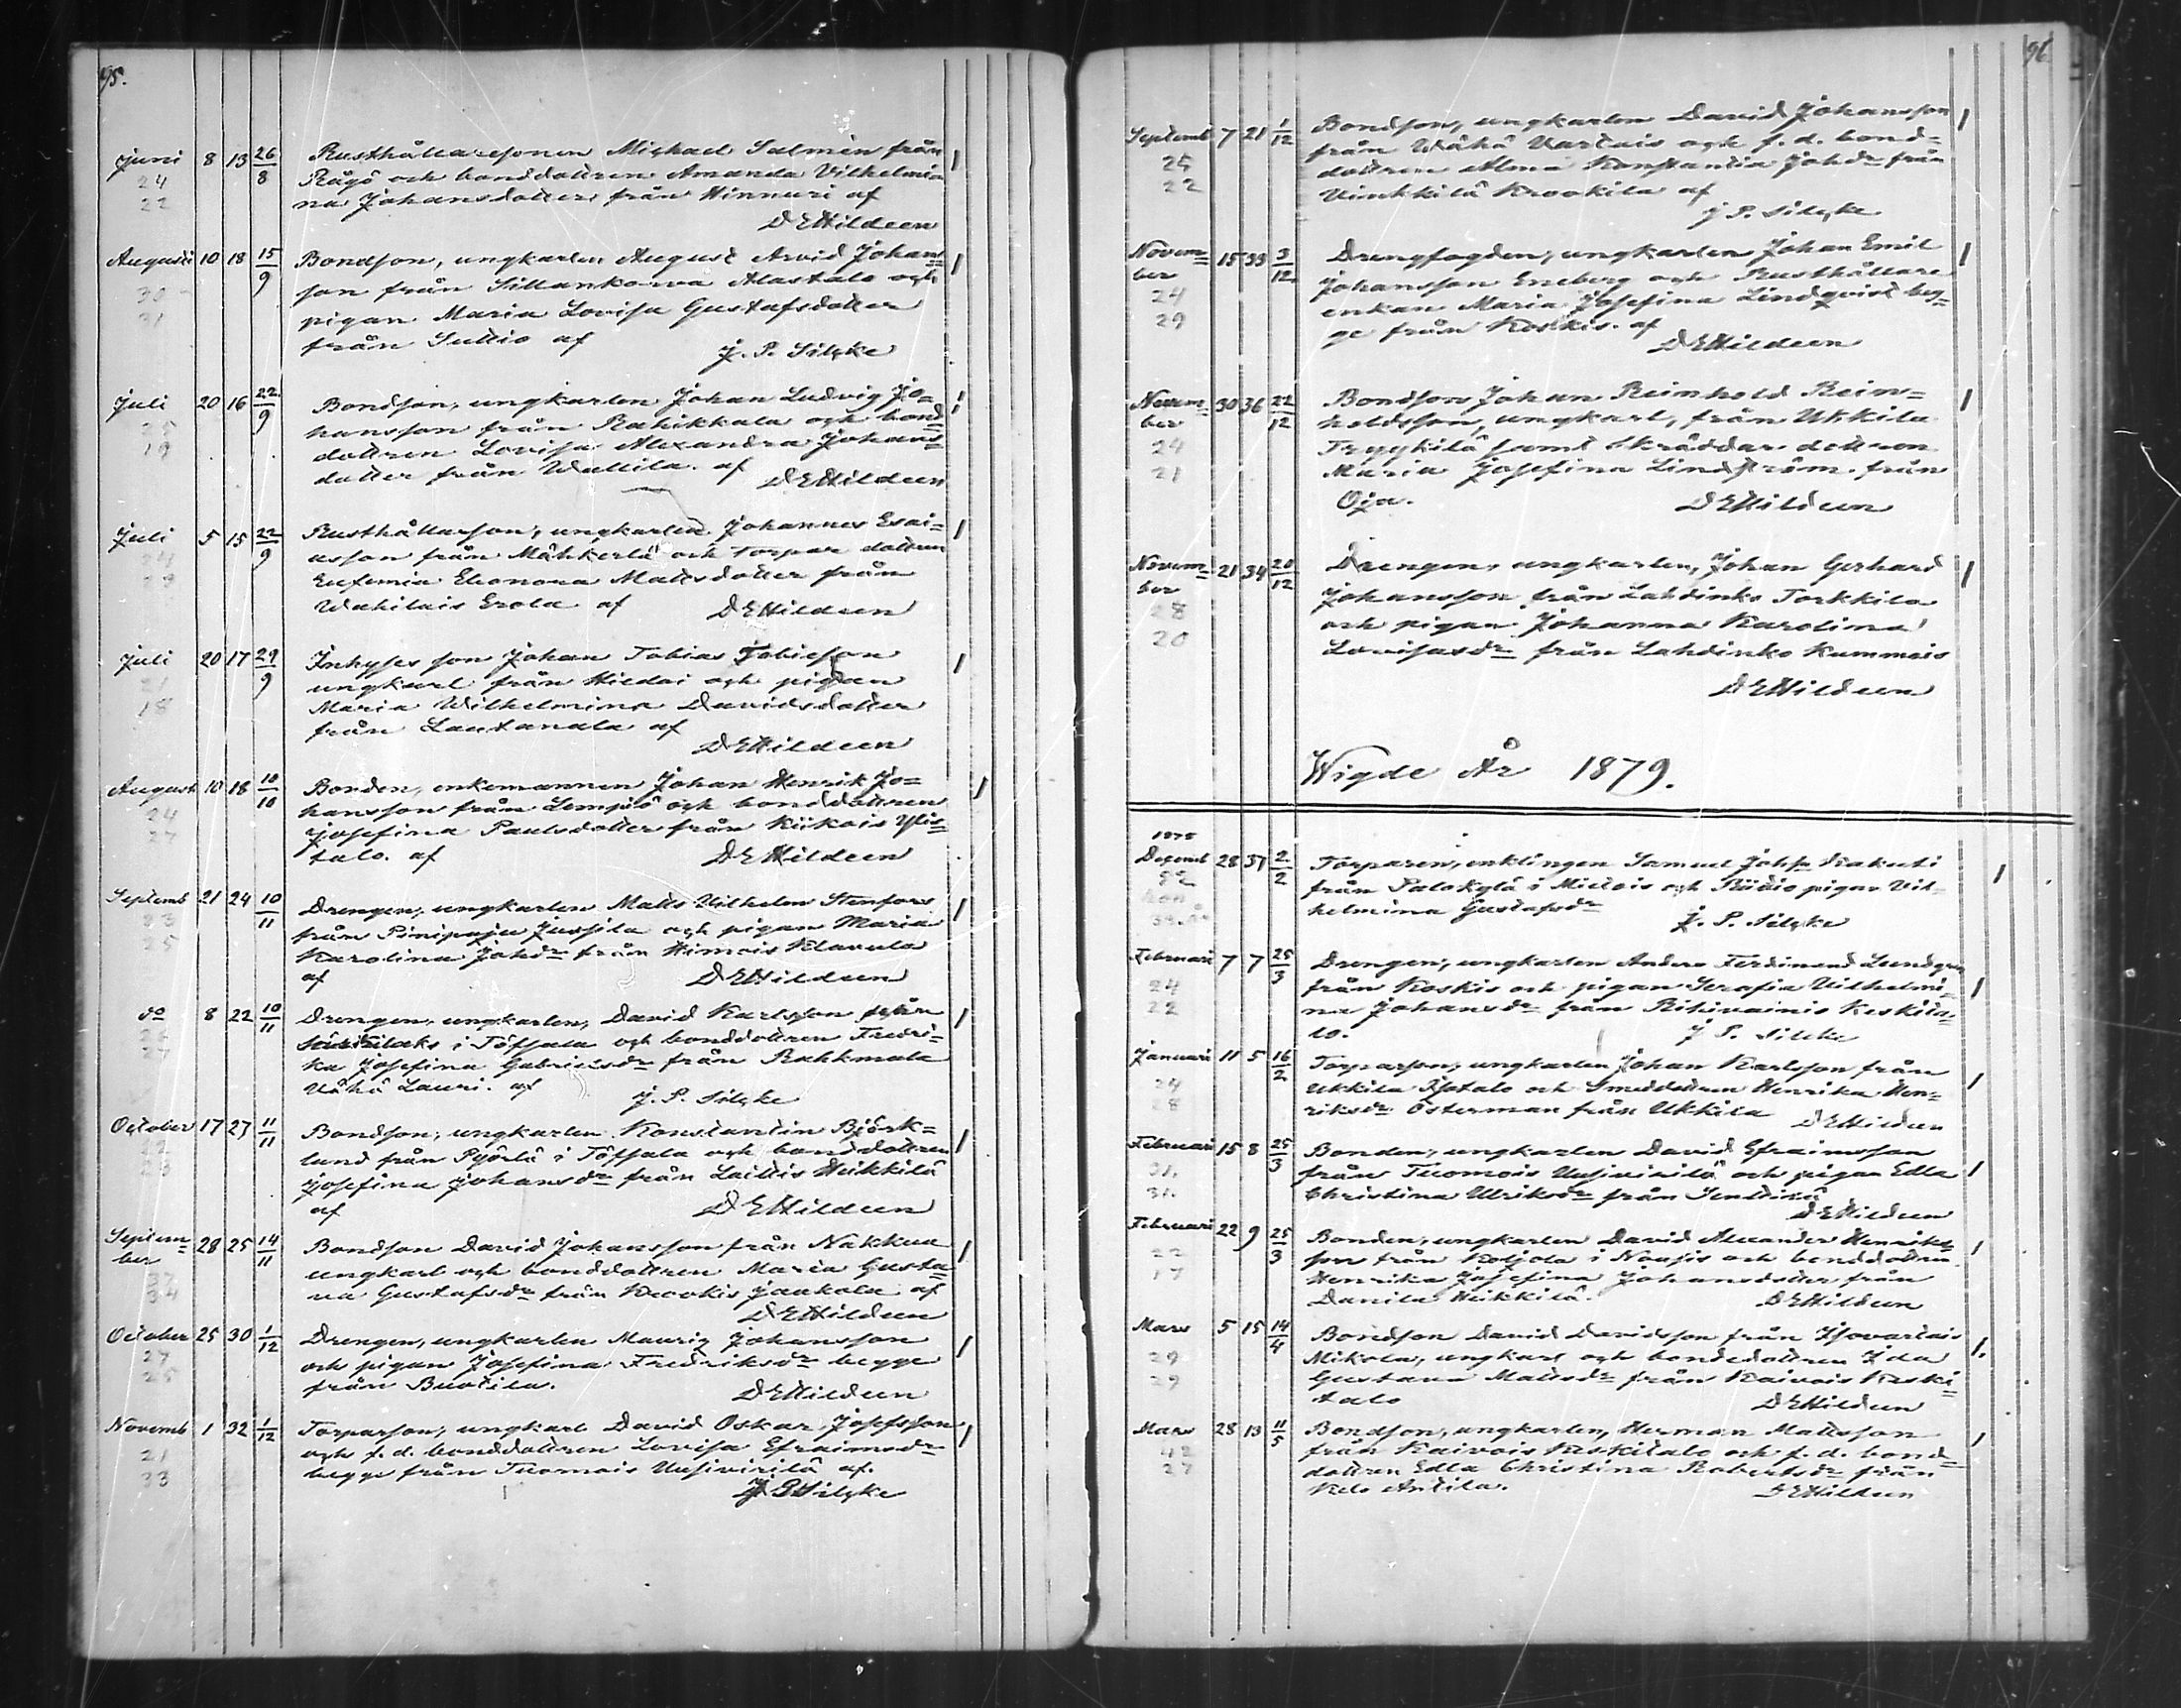 95.
Juni 8 13 26/8 Rusthållaresonen Michael Salmén från
24 Rågö och bonddottren Amanda Vilhelmi
22 na Johansdotter från Hinnuri af
D E Hildeen
Augusti 10 18 15/9 Bondson, ungkarlen August Arvid Johans=
30 son från Sillankorva Alastalo och
31 pigan Maria Lovisa Gustafsdotter
från Suttio af J. P. Silcke
Juli 20 16 22/9 Bondson, ungkarlen Johan Ludvig Jo=
25 hansson från Rahikkala och bond=
19 dottren Lovisa Alexandra Johans=
dotter från Wallila. af D E Hildeen
Juli 5 15 22/9 Rusthållarson, ungkarlen Johannes Esai=
24 asson från Mähkerlä och torpar dottren
23 Eufemia Eleonora Mattsdotter från
Wahilais Erola af D E Hildeen
Juli 20 17 29/9 Inhyses son Johan Tobias Tobiesson
21 ungkarl från Hiedai och pigan
18 Maria Wilhelmina Davidsdotter
från Lautanala af
D E Hildeen
August 10 18 10/10 Bonden, enkemannen Johan Henrik Jo=
24 hansson från Lempiö och bonddottren
27 Josefina Paulsdotter från Kiikois Ylis=
talo. af D E Hildeen
Septemb 21 24 10/11 Drengen, ungkarlen Matts Vilhelm Stenfors
23 från Pinipaju Jussila och pigan Maria
25 Karolina Johdr från Himois Klavula
af D E Hildeen
do 8 22 10/11 Drengen, ungkarlen, David Karlsson från
25 i Töfsala och bonddottren Fredri=
27 ka Josefina Gabrielsdr från Rahkmala
Vähä Lauri. af J. P. Silcke
October 17 27 11/11 Bondson, ungkarlen Konstantin Björk=
22 lund från Pyörlä i Töfsala och bonddottren
23 Josefina Johansdr från Laittis Heikkilä
af D E Hildeen
Septem= 28 25 14/11 Bondson David Johansson från Nakkua
ber ungkarl och bonddottren Maria Gusta=
37 va Gustafsdr från Kuokis Jaakola af
34 D E Hildeen
October 25 30 1/12 Drengen, ungkarlen Mauriz Johansson
27 och pigan Josefina Fredriksdr begge
25 från Buotila. D E Hildeen
Novemb 1 32 1/12 Torparson, ungkarl David Oskar Josefsson
21 och f. d. bonddottren Lovisa Efraimsdr
33 begge från Tuomois Uusivirilä af.
J P Silcke
96
Septemb 7 21 1/12 Bondson, ungkarlen David Johansson
25 från Wähä Vartais och f. d. bond=
22 dottren Alma Konstantia Johdr från
Vinkkilä Krookila af
J P. Silcke
Novem= 15 33 3/12 Drengfogden, ungkarlen Johan Emil
ber Johansson Eneberg och Rusthållare
24 enkan Maria Josefina Lindqvist beg=
29 ge från Koskis. af
D E Hildeen
Novem= 30 36 22/12 Bondson Johan Reinhold Rein=
ber holdsson, ungkarl, från Ukkila
24 Tryykilä samt Skräddar dottren
21 Maria Josefina Lindström från
Oja. D E Hildeen
Novem= 21 34 20/12 Drengen, ungkarlen, Johan Gerhard
ber Johansson från Lahdinko Torkkila
28 och pigan Johanna Karolina
20 Lovisasdr från Lahdinko Kummois
D E Hildeen
Wigde År 1879.
1878
Decemb 28 37 2/2 Torparen, enklingen Samuel Johss
52 från Palokylä i Mietois och pigan Vil=
helmina Gustafsdr J. P. Silcke
Februari 7 7 25/3 Drengen, ungkarlen Anders Ferdinand Lundgren
24 från Koskis och pigan Serafia Vilhelmi=
22 na Johansdr från Rihivainis Keskita=
lo. J P. Silcke
Januari 11 5 16/2 Torparson, ungkarlen Johan Karlsson från
24 Ukkila Isotalo och Smeddottren Henrika Hen=
28 riksdr Österman från Ukkila D E Hildeen
Februari 15 8 25/3 Bonden, ungkarlen David Efraimsson
31. från Tuomois Uusivirilä och pigan Edla
31. Christina Ulriksdr från
D E Hildeen
Februari 22 9 25/3 Bonden, ungkarlen David Alexander Henriks=
22 son från Koljola i Nousis och bonddottren
17 Henrika Josefina Johansdotter från
Danila Heikkilä. D E Hildeen
Mars 5 15 14/4 Bondson David Davidsson från Isovartais
29 Mikola, ungkarl och bondedottren Ida
29 Gustava Mattsdr från Kaivois Keski=
talo D E Hildeen
Mars 28 13 11/5 Bondson, ungkarlen, Herman Mattsson
42 från Kaivois Keskitalo och f. d. bond=
27 dottren Edla Christina Robertsdr från
Kelo Anttila. D E Hildeen